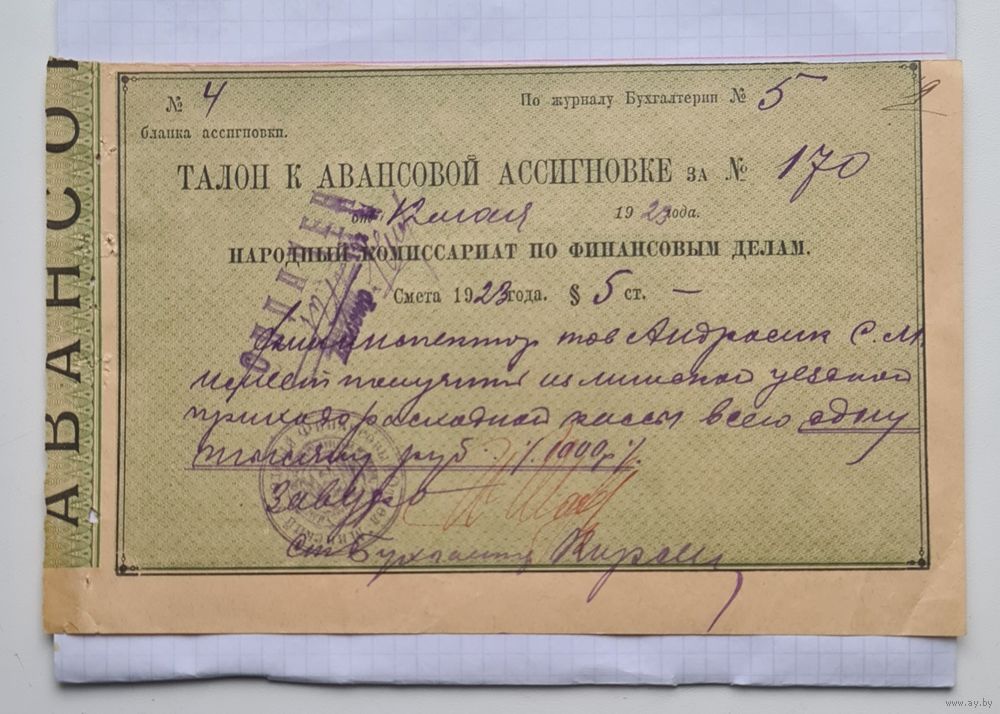 АВАНСО
№ 4
бланка ассигновки.
По журналу Бухгалтерии № 5
ТАЛОН К АВАНСОВОЙ АССИГНОВКЕ за № 170
от 12 мая 1923 года.
НАРОДНЫЙ КОМИССАРИАТ ПО ФИНАНСОВЫМ ДЕЛАМ.
Смета 1923 года. § 5 ст. —
Фининспектор тов Андрасик С. М.
может получить из минской уездной
приходорасходной кассы всего одну
тысячу руб. /. 1000 р /.
Завуфо
Ст Бухгалтер
www.ay.by